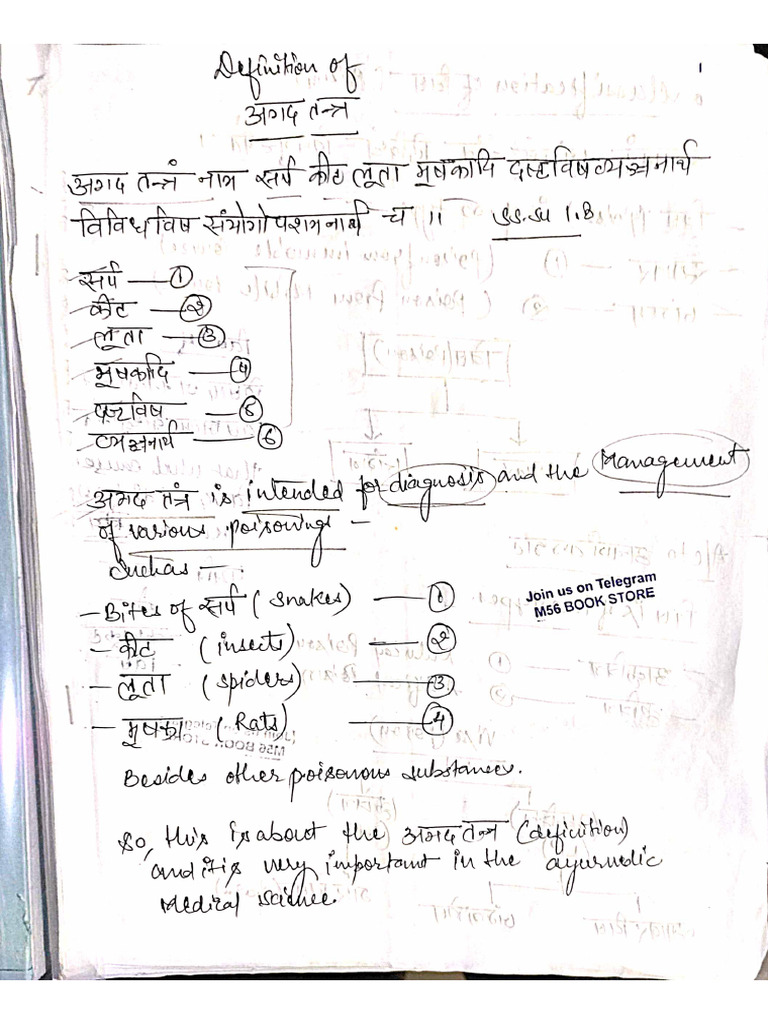 Definition of
1
अगद तन्त्र
अगद तन्त्रं नाम सर्प कीट लूता मूषकादि दष्टविषव्यञ्जनार्थ
विविधविष संयोगोपशमनार्थ च ॥ Su.Su 1.8
सर्प — ①
कीट — ②
लूता — ③
मूषकादि — ④
दष्टविष — ⑤
व्यञ्जनार्थ — ⑥
अगद तंत्र is intended for diagnosis and the Management
of various poisonings –
Suchas –
– Bites of सर्प (snakes) — ①
– कीट (insects) — ②
– लूता (spiders) — ③
– मूषका (Rats) — ④
Join us on Telegram
M56 BOOK STORE
Besides other poisonous substances.
So, this is about the अगद तन्त्र (definition)
and it is very important in the ayurvedic
Medical science.